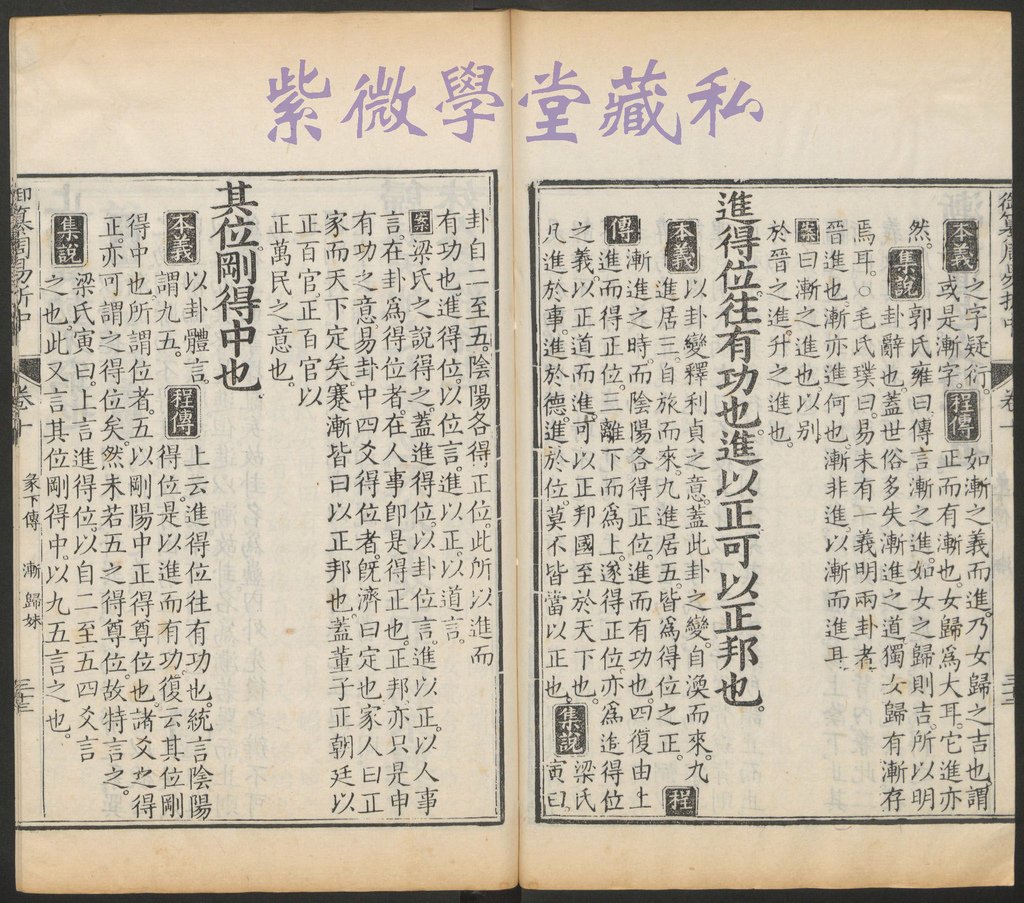 紫微學堂藏私
本義 之字疑衍。程傳 如漸之義而進。乃女歸之吉也。謂
或是漸字。 正而有漸也。女歸爲大耳。它進亦
然。集說 郭氏雍曰。傳言漸之進。如女之歸則吉。所以明
卦辭也。蓋世俗多失漸進之道。獨女歸有漸存
焉耳。○毛氏璞曰。易未有一義明兩卦者。
晉進也。漸亦進。何也。漸非進。以漸而進耳。
案曰漸之進也。以別
於晉之進。升之進也。
進得位。往有功也。進以正。可以正邦也。
本義 以卦變釋利貞之意。蓋此卦之變。自渙而來。九
進居三。自旅而來。九進居五。皆爲得位之正。程
傳 漸進之時。而陰陽各得正位。進而有功也。四復由上
進而得正位。三離下而爲上。遂得正位。亦爲進得位
之義。以正道而進。可以正邦國至於天下也。集說 梁氏
凡進於事。進於德。進於位。莫不皆當以正也。 寅曰。
卦自二至五。陰陽各得正位。此所以進而
有功也。進得位。以位言。進以正。以道言。
案 梁氏之說得之。蓋進得位。以卦位言。進以正。以人事
言。在卦爲得位者。在人事即是得正也。正邦。亦只是申
有功之意。易卦中四爻得位者。旣濟曰定也。家人曰正
家而天下定矣。蹇漸皆曰以正邦也。蓋董子正朝廷以
正百官。正百官以
正萬民之意也。
其位剛得中也。
本義 以卦體言。程傳 上云進得位往有功也。統言陰陽
謂九五。 得位。是以進而有功。復云其位剛
得中也。所謂位者。五以剛陽中正得尊位也。諸爻之得
正。亦可謂之得位矣。然未若五之得尊位。故特言之。
集說 梁氏寅曰。上言進得位。以自二至五四爻言
之也。此又言其位剛得中。以九五言之也。
彖下傳 漸 歸妹